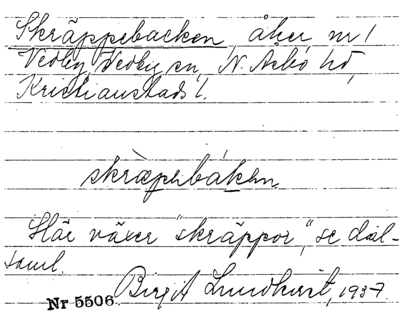 Skräppebacken, åker nr 1
Vedby, Vedby sn, N. Åsbo hd,
Kristianstads l.
skræpebáken.
Här växer "skräppor", se dial-
saml.
Nr 5506. Birgit Lundkvist, 1937.